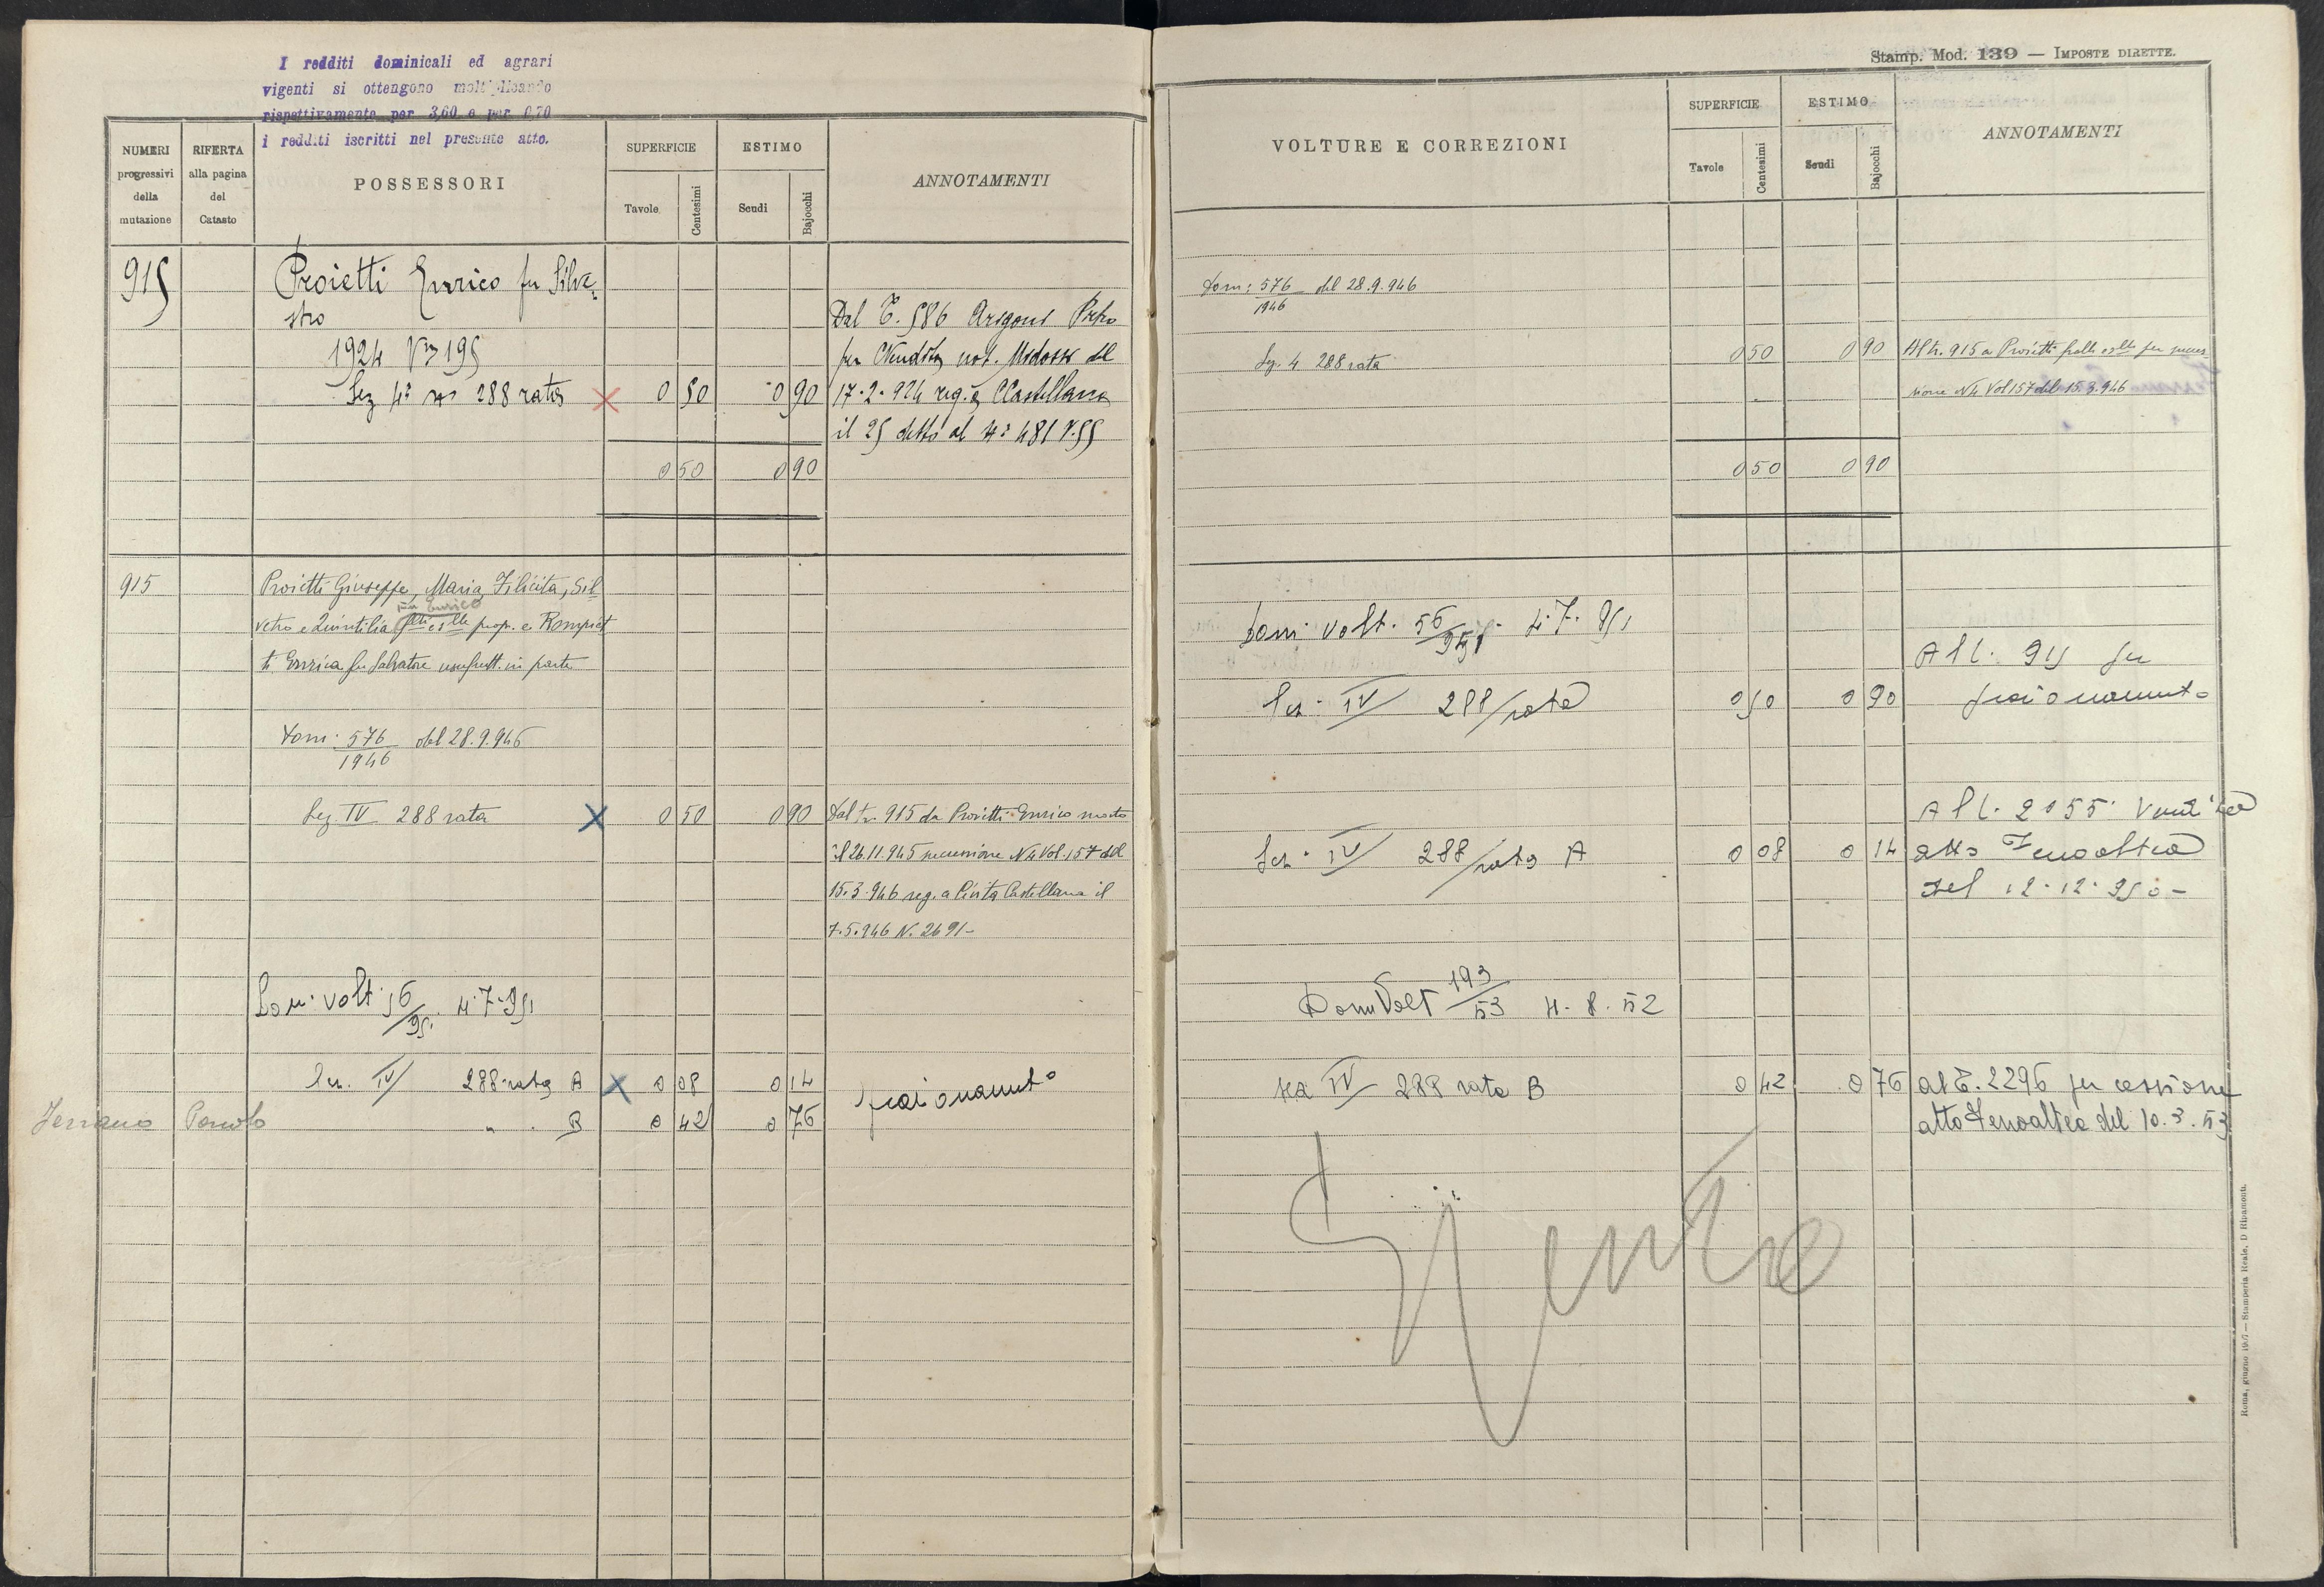 I redditi dominicali ed agrari
vigenti si ottengono moltiplicando
rispettivamente per 3,60 e per 0,70
i redditi iscritti nel presente atto.
NUMERI progressivi della mutazione
RIFERTA alla pagina del Catasto
POSSESSORI
SUPERFICIE
Tavole
Centesimi
ESTIMO
Scudi
Bajocchi
ANNOTAMENTI
915
Proietti Enrico fu Silve-
stro
1924 Vra 195
Sez 4ª No 288 rata X 0 50 0 90
0 50 0 90
Dal T. 586 Arigoni
per Vendita not. Midossi del
17-2-924 reg. a CCastellana
il 25 detto al Nº 481 V. 55
915
Proietti Giuseppe, Maria, Filicita, Sil
vetro e Quintilia flli e slle prop. e Rompiet
fu Enrico
ti Enrica fu Salvatore usufrutt. in parte
Dom: 576/1946 del 28.9.946
Sez. IV 288 rata X 0 50 0 90
Dal tr. 915 da Proietti Enrico morto
il 26.11.945 successione N4 Vol. 157 del
15.3.946 reg. a Civita Castellana il
7.5.946 N. 2691-
Dom. volt. 56/951 4.7.951
Sez. IV 288 rata A X 0 08 0 14
" " B 0 42 0 76
frazionamento
Terrano
Stamp. Mod. 139 — IMPOSTE DIRETTE.
VOLTURE E CORREZIONI
SUPERFICIE
Tavole
Centesimi
ESTIMO
Scudi
Bajocchi
ANNOTAMENTI
Dom: 576/1946 del 28.9.946
Sez. 4 288 rata 0 50 0 90
Al tr. 915 a Proietti flalli e slle per succes-
sione N4 Vol 157 del 15.3.946
0 50 0 90
Dom. volt. 56/951 4.7.951
Sez. IV 288/rata 0 50 0 90
Al t. 915 per
frazionamento
Sez. IV 288/rata A 0 08 0 14
Al t. 2055 Vendita
atto Fenoaltea
del 12.12.950-
Dom Volt 193/53 4.8.52
sez IV 288 rata B 0 42 0 76
al T. 2296 per cessione
atto Fenoaltea del 10.3.53
Spento
Roma, giugno 1937 — Stamperia Reale, D Ripamonti.